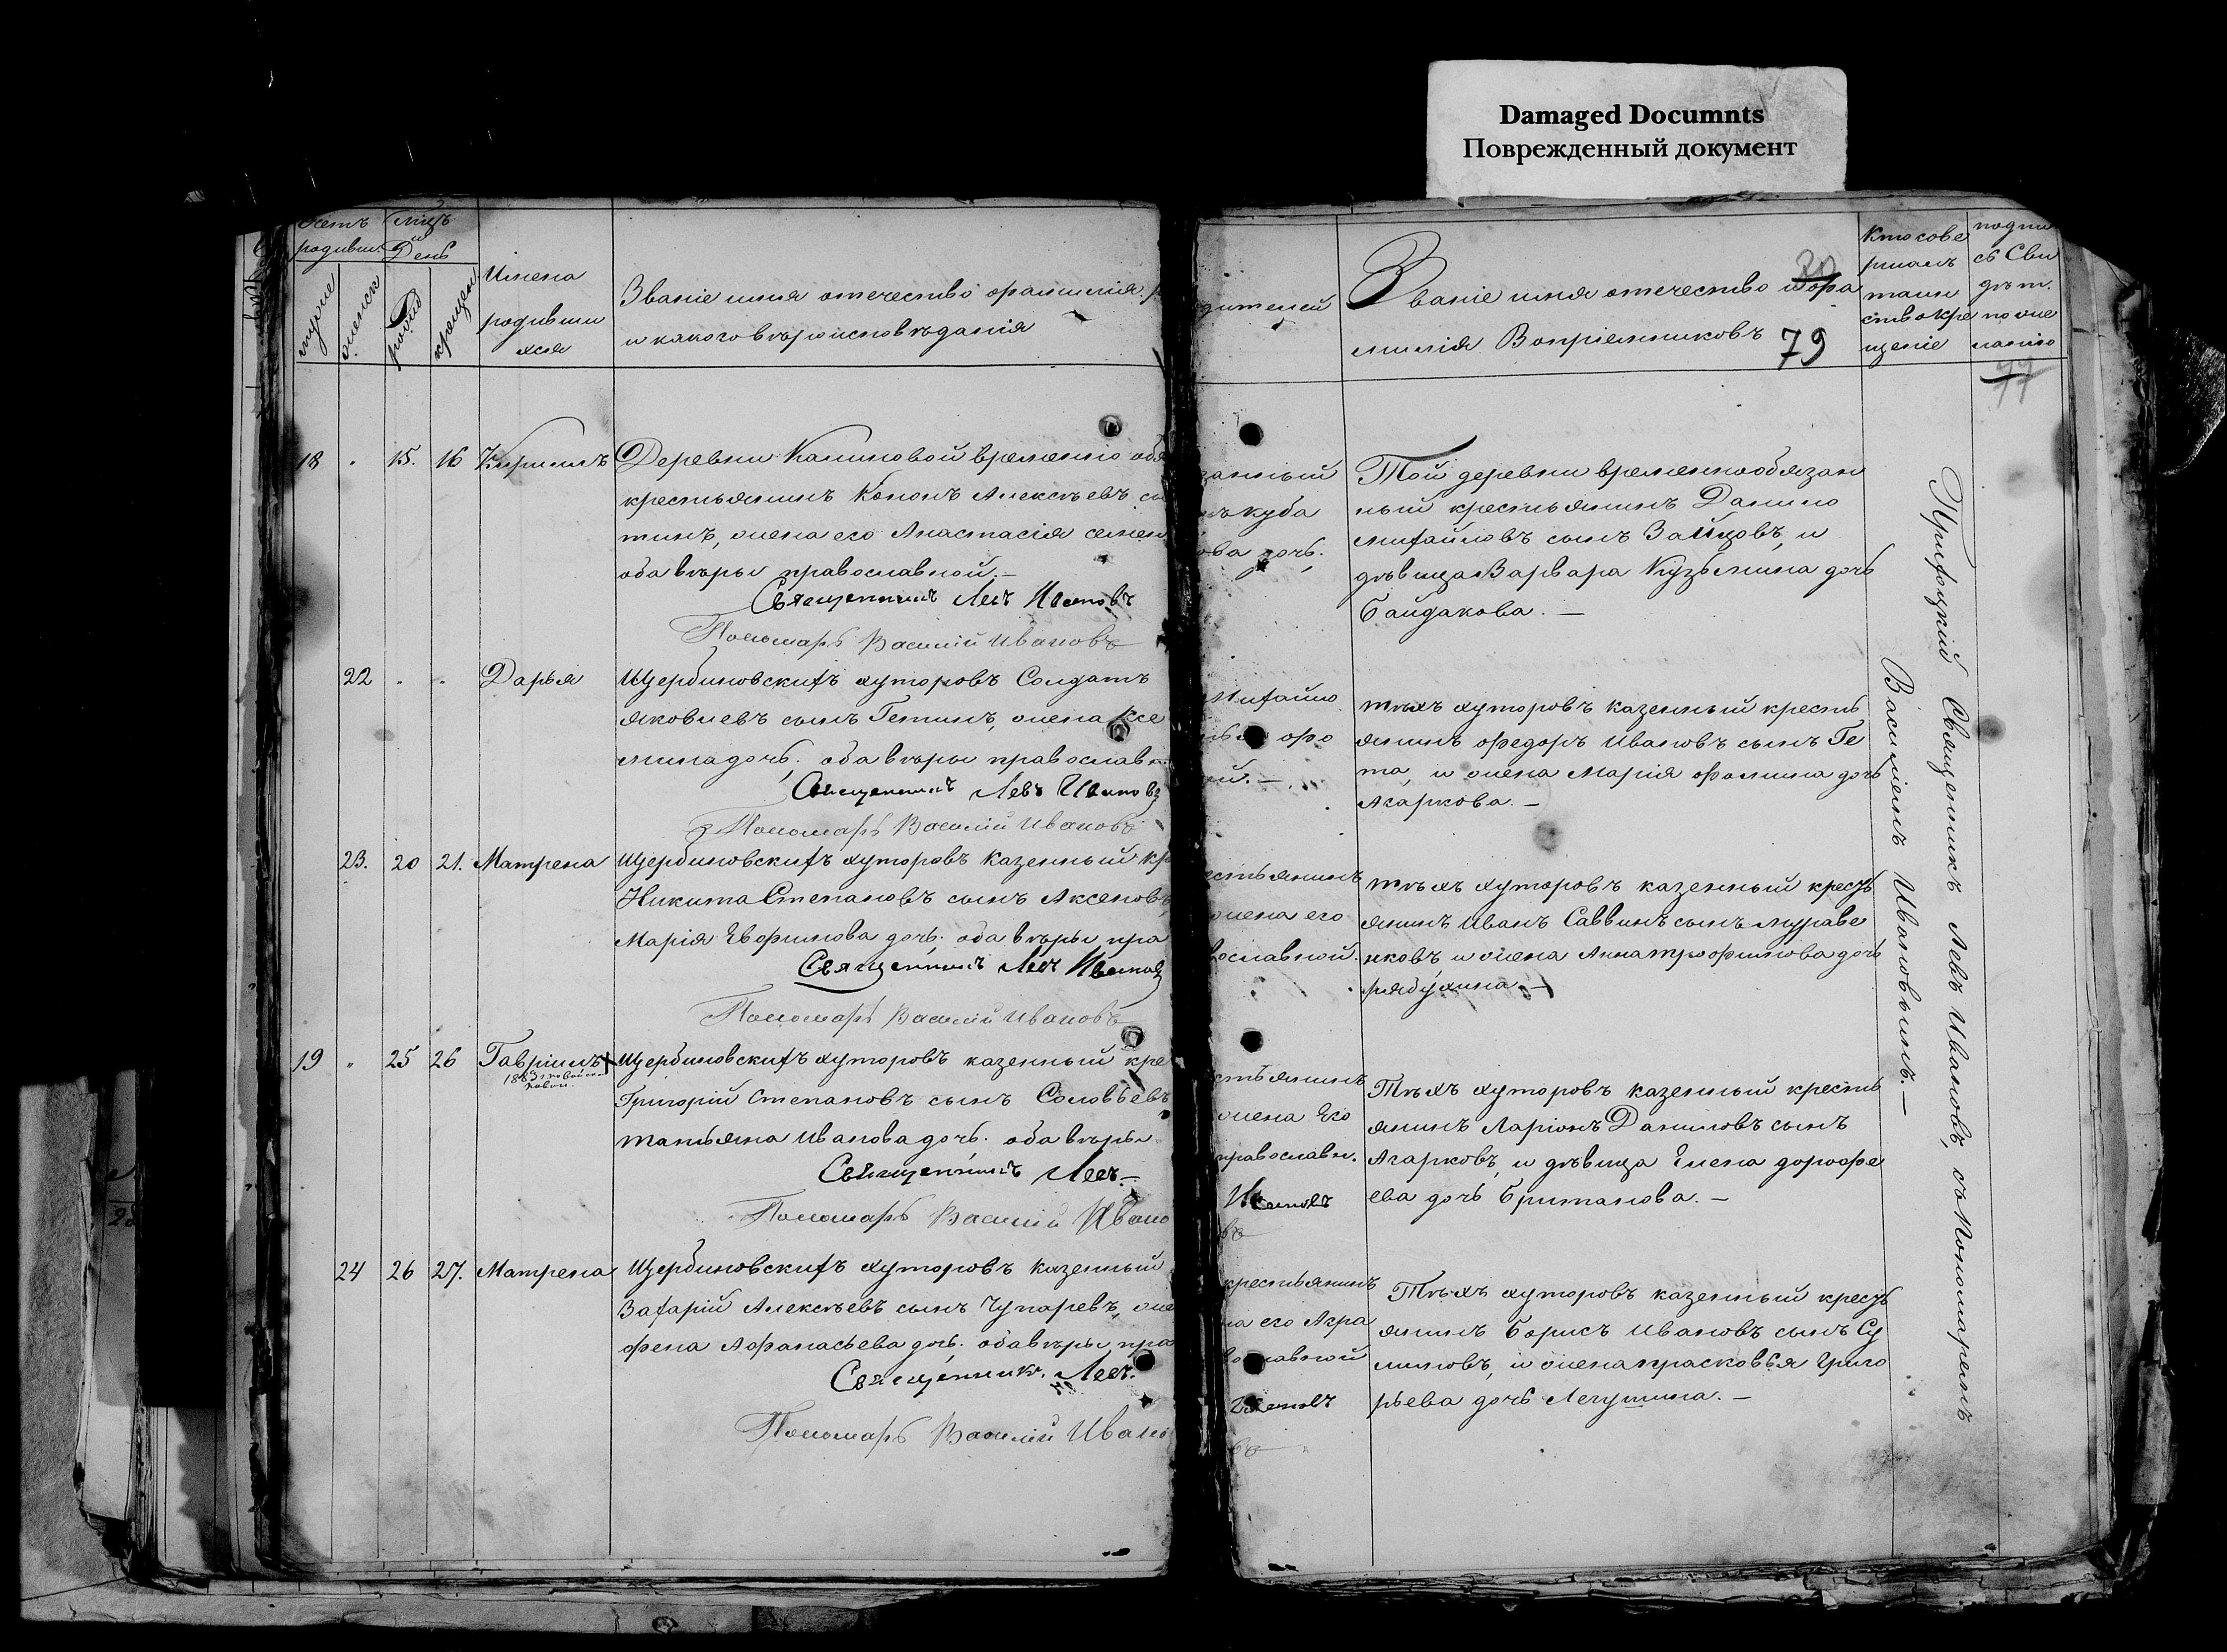 Damaged Documnts
Поврежденный документ
Счетъ
родивш.
Мцъ
и
День
мужие
женск
рожд
крещен
Имена
родивши
хся
Званіе имя отечество фамилія р
и какого вѣроисповѣданія
дителей
Званіе имя отечество и фа
милія Вопріемниковъ
79
Кто сове
ршалъ
таин
ство кре
щеніе
подпи
сь Сви
дѣт.
по же
ланію
77
18 " 15. 16 Кирилъ
Деревни Калиновой временно обя
занный
крестьянинъ Кононъ Алексѣевъ сы
нъ Куба
тинъ, жена его Анастасія семен
ова дочь.
оба вѣры православной. —
Священникъ Левъ Ивановъ
Пономарь Василій Ивановъ
Той деревни временнообязан
ный крестьянинъ Данило
Михайловъ сынъ Зайцовъ, и
дѣвица Варвара Кузьмина дочь
Байдакова. —
22 " " Дарья
Щербиновскихъ хуторовъ Солдатъ
Михайло
яковлевъ сынъ Гетинъ, жена Ксе
нья фо
мина дочь, оба вѣры православн
ой. —
Священникъ Левъ Ивановъ
Пономарь Василій Ивановъ
тѣхъ хуторовъ казенный кресть
янинъ федоръ Ивановъ сынъ Ге
та, и жена Марія фомина дочь
Агаркова. —
23. 20 21. Матрена
Щербиновскихъ хуторовъ Казенный кр
естьянинъ
Никита Степановъ сынъ Аксеновъ,
жена его
Марія Евфимова дочь. оба вѣры пра
вославной.
Священникъ Левъ Ивановъ
Пономарь Василій Ивановъ
тѣхъ хуторовъ казенный кресть
янинъ Иванъ Саввинъ сынъ мураве
нковъ и жена Анна трофимова дочь
рябухина. —
19 " 25 26 Гавріилъ
1883
Щербиновскихъ хуторовъ казенный кре
стьянинъ
Григорій Степановъ сынъ Соловьевъ
жена Его
татьяна Иванова дочь. оба вѣры
православн.
Священникъ Левъ. —
Ивановъ
Пономарь Василій Ивано
въ
Тѣхъ хуторовъ казенный кресть
янинъ Ларіонъ Даниловъ сынъ
Агарковъ, и дѣвица Елена дорофе
ева дочь Бриталова. —
24 26 27. Матрена
Щербиновскихъ хуторовъ Казенный
крестьянинъ
Захарій Алексѣевъ сынъ Чупаревъ, же
на его Агра
фена Афанасьева дочь. оба вѣры пра
вославной
Священникъ. Левъ.
Ивановъ
Пономарь Василій Ивано
въ
Тѣхъ хуторовъ казенный кресть
янинъ Борисъ Ивановъ сынъ Су
лимовъ, и жена прасковья Григо
рьева дочь Легушина. —
Священникъ Левъ Ивановъ, съ Пономаремъ
Василіемъ Ивановымъ. —